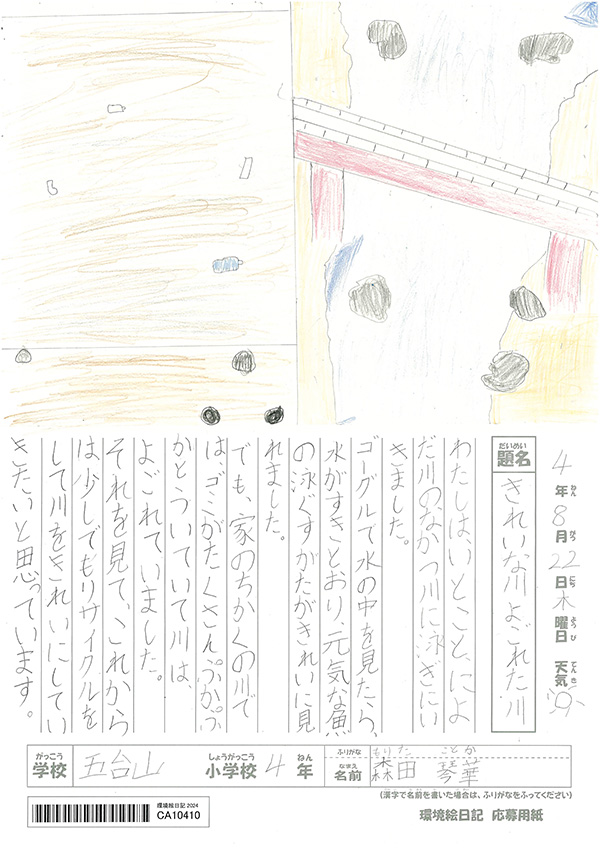 4年8月22日木曜日 天気
ねん
がつ
にち
ようび
てんき
だいめい
題名
きれいな川よごれた川
わたしは、いとこと、によ
だ川のなかつ川に泳ぎにい
きました。
ゴーグルで水の中を見たら、
水がすきとおり、元気な魚
の泳ぐすがたがきれいに見
れました。
でも、家のちかくの川で
は、ゴミがたくさんぷかぷ
かとういていて川は、
よごれていました。
それを見て、これから
は少しでもリサイクルを
して川をきれいにしてい
きたいと思っています。
がっこう
学校
五台山
しょうがっこう
小学校
4
ねん
年
ふりがな
もりた ことか
なまえ
名前
森田 琴華
(漢字で名前を書いた場合は、ふりがなをふってください)
環境絵日記 2024
CA10410
環境絵日記 応募用紙